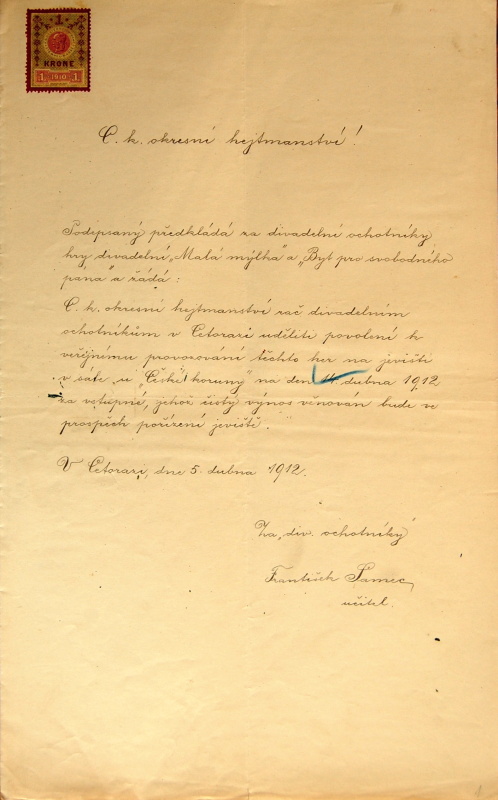 1
KRONE
1 1910 1
C. k. okresní hejtmanství!
Podepsaný předkládá za divadelní ochotníky
hry divadelní „Malá mýlka" a „Byt pro svobodného
pána" a žádá:
C. k. okresní hejtmanství rač divadelním
ochotníkům v Cetorazi uděliti povolení k
veřejnému provozování těchto her na jevišti
v sále „u České koruny" na den 14. dubna 1912
za vstupné, jehož čistý výnos věnován bude ve
prospěch pořízení jeviště.
V Cetorazi, dne 5. dubna 1912.
Za div. ochotníky
František Samec,
učitel.